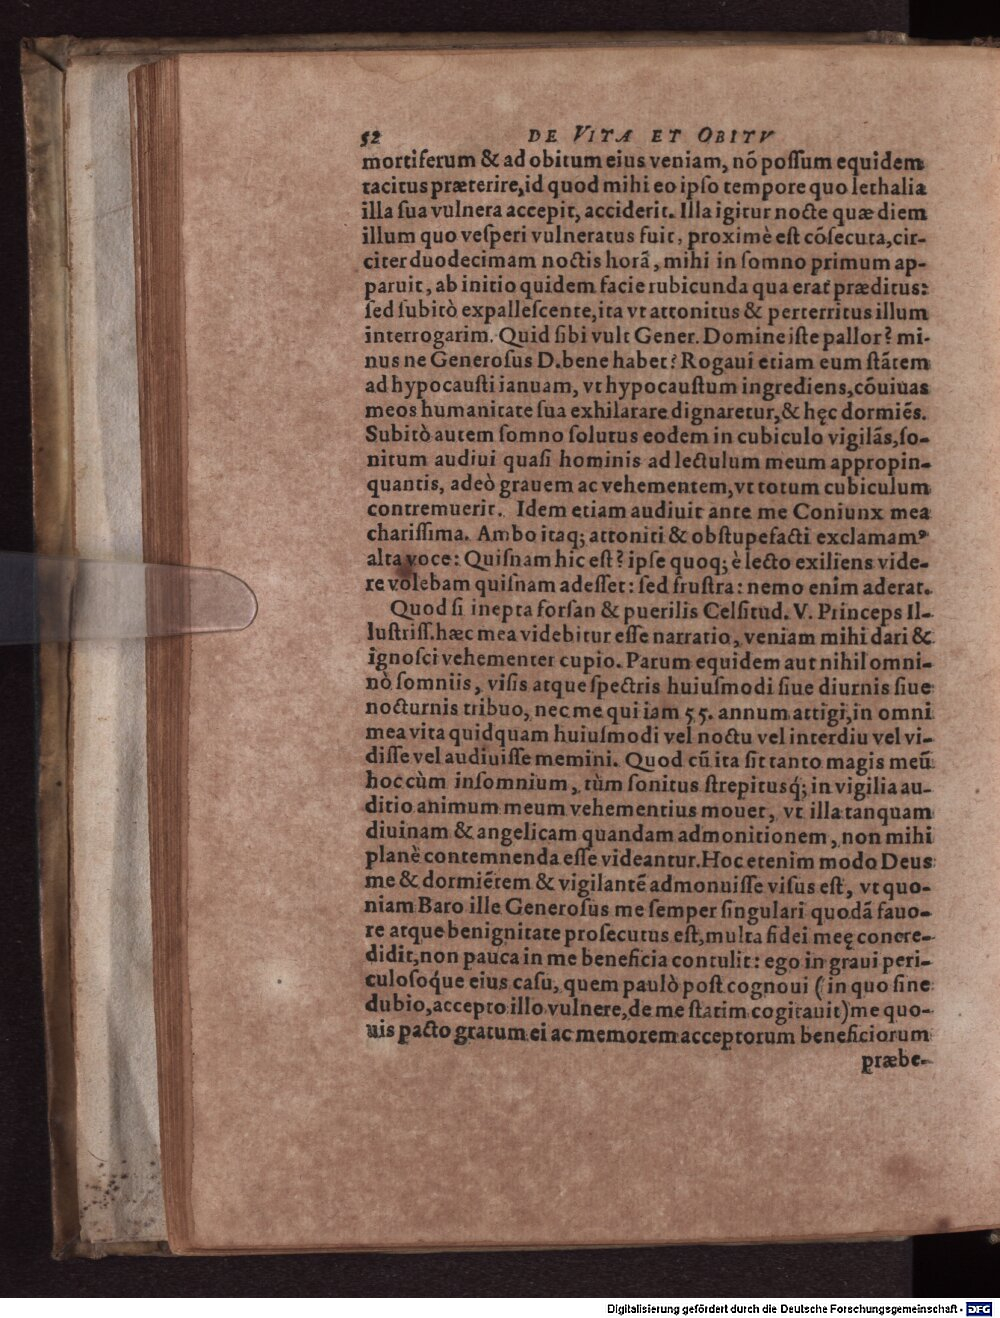 52 DE VITA ET OBITV
mortiferum & ad obitum eius veniam, nō poſſum equidem
tacitus præterire, id quod mihi eo ipſo tempore quo lethalia
illa ſua vulnera accepit, acciderit. Illa igitur nocte quæ diem
illum quo veſperi vulneratus fuit, proximè eſt cōſecuta, cir-
citer duodecimam noctis horā, mihi in ſomno primum ap-
paruit, ab initio quidem facie rubicunda qua erat præditus:
ſed ſubitò expalleſcente, ita vt attonitus & perterritus illum
interrogarim. Quid ſibi vult Gener. Domine iſte pallor? mi-
nus ne Generoſus D. bene habet? Rogaui etiam eum ſtātem
ad hypocauſti ianuam, vt hypocauſtum ingrediens, cōuiuas
meos humanitate ſua exhilarare dignaretur, & hęc dormiēs.
Subitò autem ſomno ſolutus eodem in cubiculo vigilās, ſo-
nitum audiui quaſi hominis ad lectulum meum appropin-
quantis, adeò grauem ac vehementem, vt totum cubiculum
contremuerit. Idem etiam audiuit ante me Coniunx mea
chariſſima. Ambo itaq; attoniti & obſtupefacti exclamamꝰ
alta voce: Quiſnam hic eſt? ipſe quoq; è lecto exiliens vide-
re volebam quiſnam adeſſet: ſed fruſtra: nemo enim aderat.
Quod ſi inepta forſan & puerilis Celſitud. V. Princeps Il-
luſtriſſ. hæc mea videbitur eſſe narratio, veniam mihi dari &
ignoſci vehementer cupio. Parum equidem aut nihil omni-
nò ſomniis, viſis atque ſpectris huiuſmodi ſiue diurnis ſiue
nocturnis tribuo, nec me qui iam 55. annum attigi, in omni
mea vita quidquam huiuſmodi vel noctu vel interdiu vel vi-
diſſe vel audiuiſſe memini. Quod cū ita ſit tanto magis meū
hoc cùm inſomnium, tùm ſonitus ſtrepitusq́; in vigilia au-
ditio animum meum vehementius mouet, vt illa tanquam
diuinam & angelicam quandam admonitionem, non mihi
planè contemnenda eſſe videantur. Hoc etenim modo Deus
me & dormiētem & vigilantē admonuiſſe viſus eſt, vt quo-
niam Baro ille Generoſus me ſemper ſingulari quodā fauo-
re atque benignitate proſecutus eſt, multa fidei meę concre-
didit, non pauca in me beneficia contulit: ego in graui peri-
culoſoq́ue eius caſu, quem paulò poſt cognoui (in quo ſine
dubio, accepto illo vulnere, de me ſtatim cogitauit) me quo-
uis pacto gratum ei ac memorem acceptorum beneficiorum
præbe-
Digitalisierung gefördert durch die Deutsche Forschungsgemeinschaft - DFG